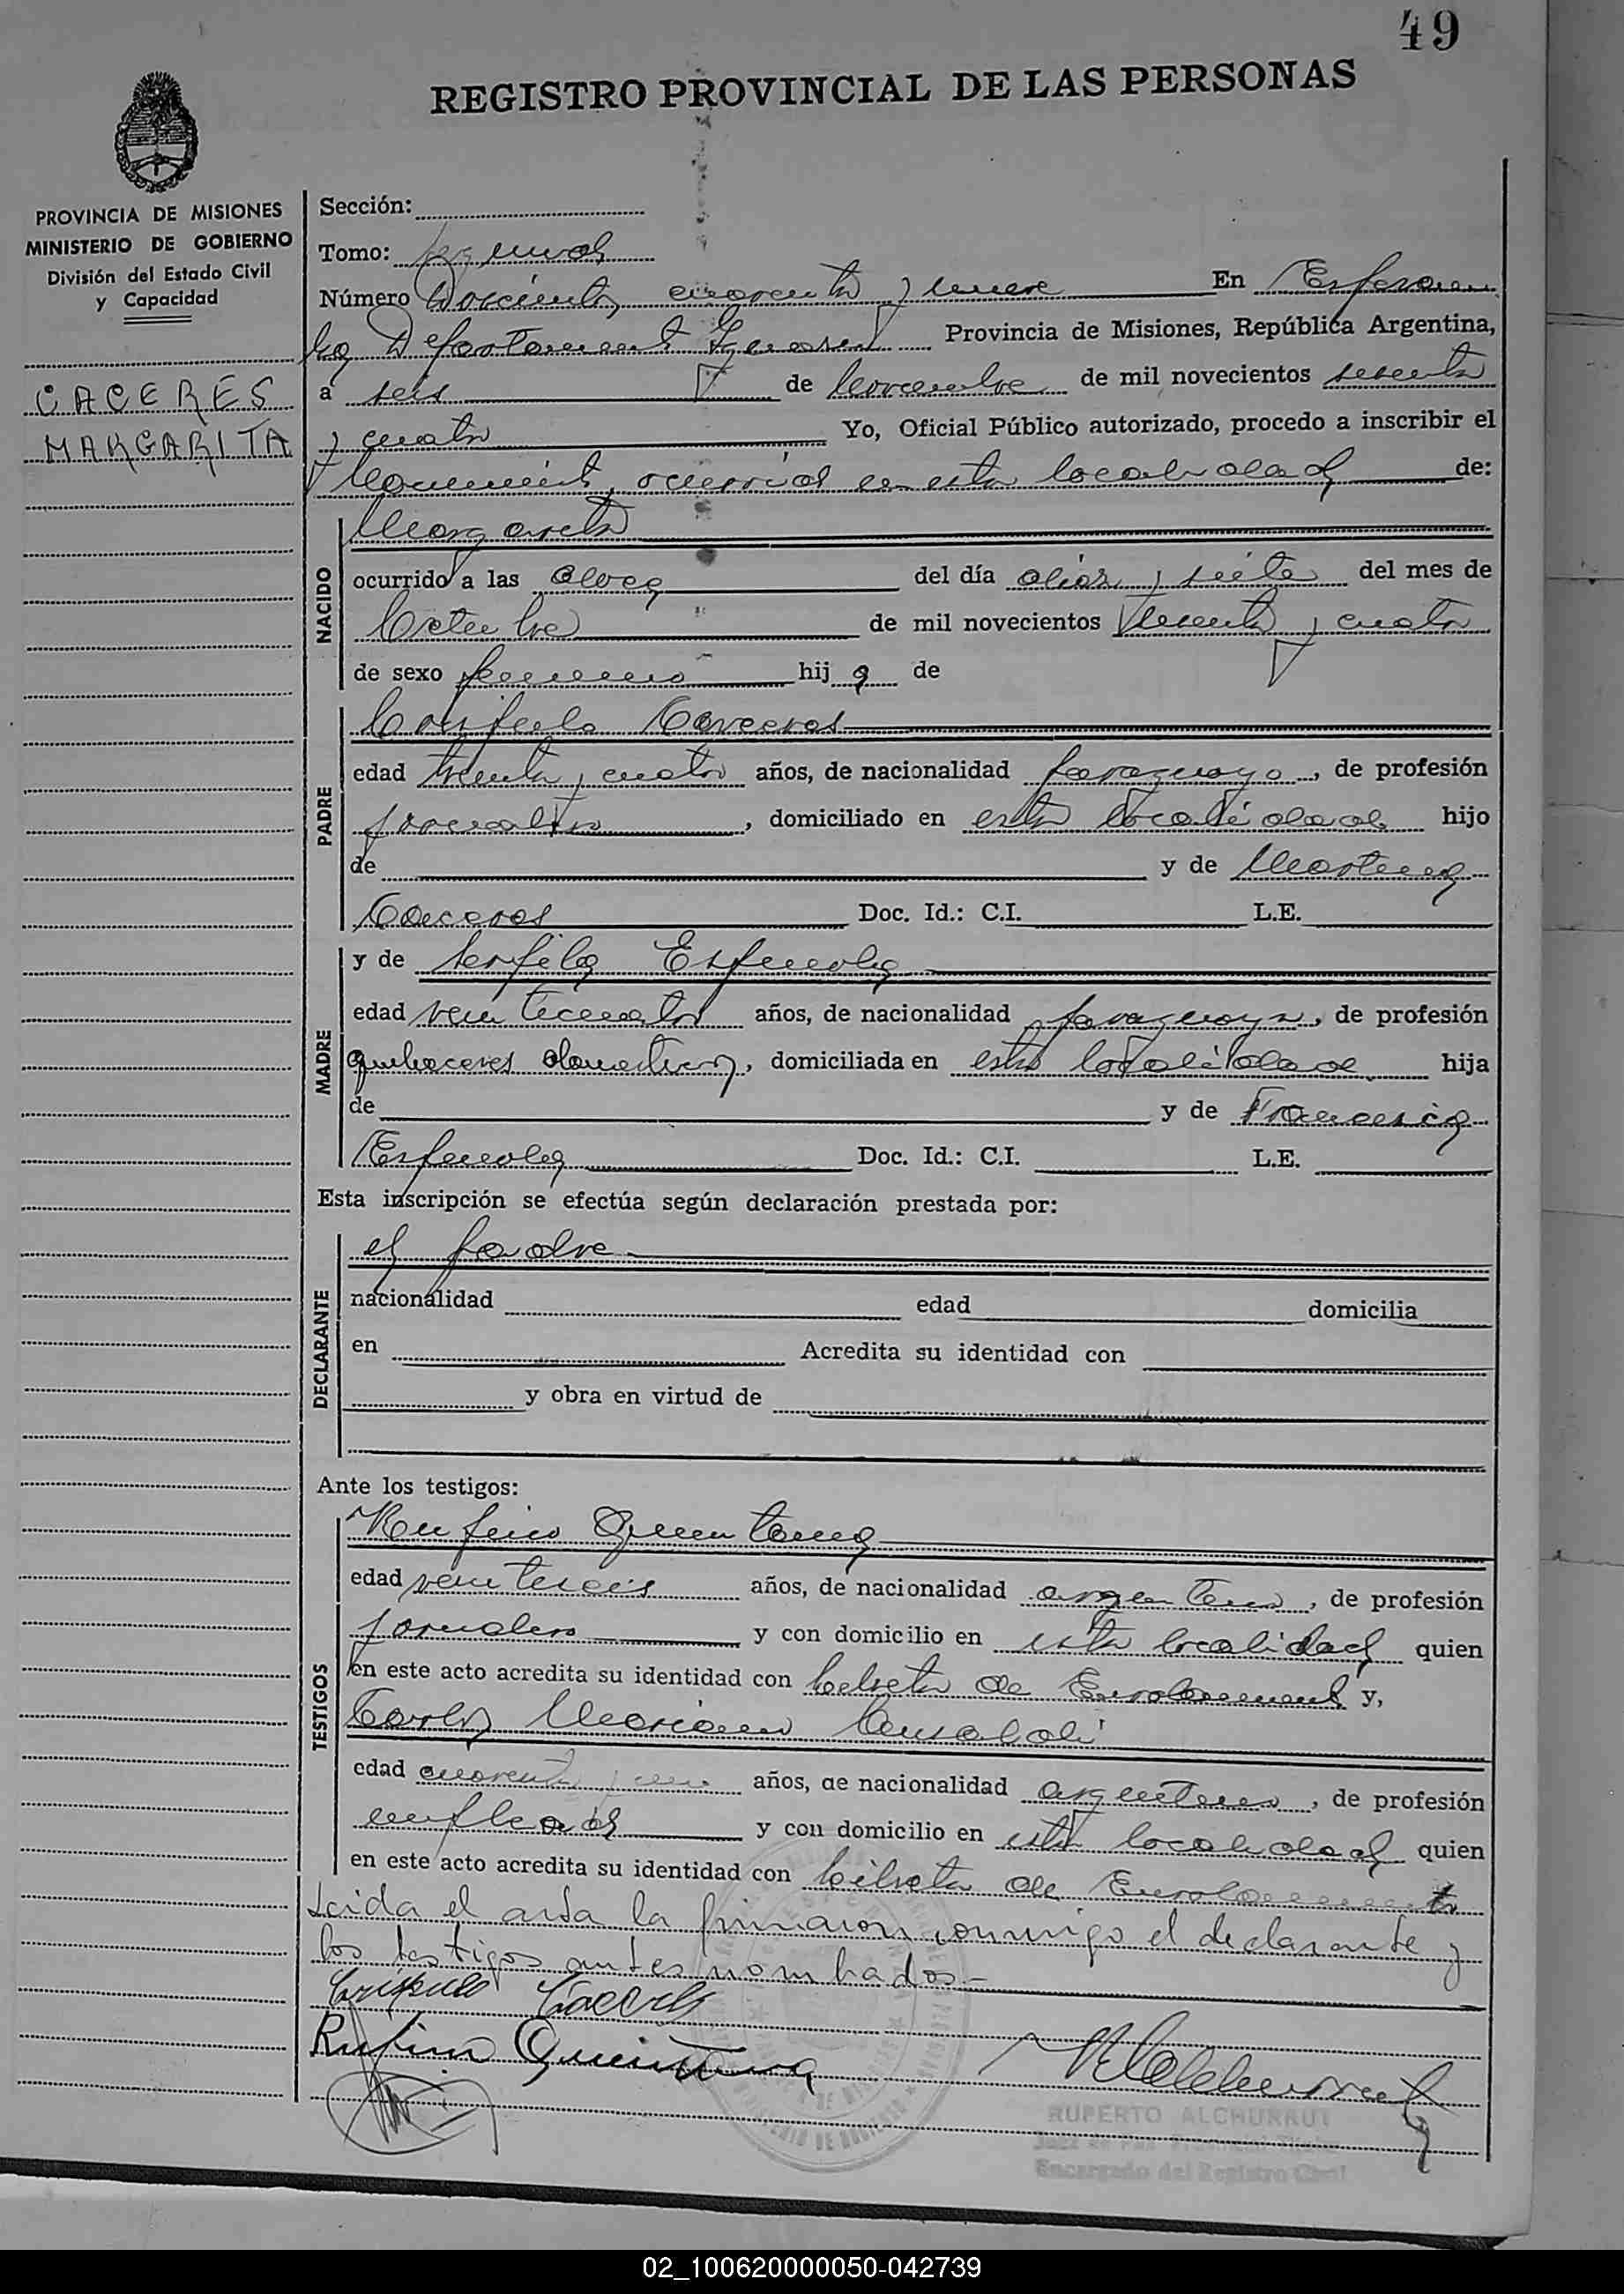 49
REGISTRO PROVINCIAL DE LAS PERSONAS
PROVINCIA DE MISIONES
MINISTERIO DE GOBIERNO
División del Estado Civil
y Capacidad
CACERES
MARGARITA
Sección:
Tomo: segundo
Número Doscientos cuarenta y nueve En Esperan
za Departamento Iguazú Provincia de Misiones, República Argentina,
a seis de noviembre de mil novecientos sesenta
y cuatro Yo, Oficial Público autorizado, procedo a inscribir el
Nacimiento, ocurrido en esta localidad de:
NACIDO
Margarita
ocurrido a las doce del día diez y siete del mes de
Octubre de mil novecientos sesenta y cuatro
de sexo femenino hija de
PADRE
Crispulo Caceres
edad treinta y cuatro años, de nacionalidad paraguayo, de profesión
jornalero, domiciliado en esta localidad hijo
de y de Martina
Caceres Doc. Id.: C.I. L.E.
MADRE
y de Espindola
edad veinticuatro años, de nacionalidad paraguaya, de profesión
quehaceres domesticos, domiciliada en esta localidad hija
de y de Francisca
Espindola Doc. Id.: C.I. L.E.
Esta inscripción se efectúa según declaración prestada por:
DECLARANTE
el padre
nacionalidad edad domicilia
en Acredita su identidad con
y obra en virtud de
Ante los testigos:
TESTIGOS
Rufino Quintana
edad veinteseis años, de nacionalidad argentino, de profesión
jornalero y con domicilio en esta localidad quien
en este acto acredita su identidad con Libreta de Enrolamiento y,
Carlos Mariano
edad cuarenta y uno años, de nacionalidad argentino, de profesión
empleado y con domicilio en esta localidad quien
en este acto acredita su identidad con Libreta de Enrolamiento
Leida el acta la firmaron conmigo el declarante y
los testigos antes nombrados.-
Crispulo Caceres
Rufino Quintana
RUPERTO ALCHURRUT
Juez de Paz
Encargado del Registro Civil
02_100620000050-042739